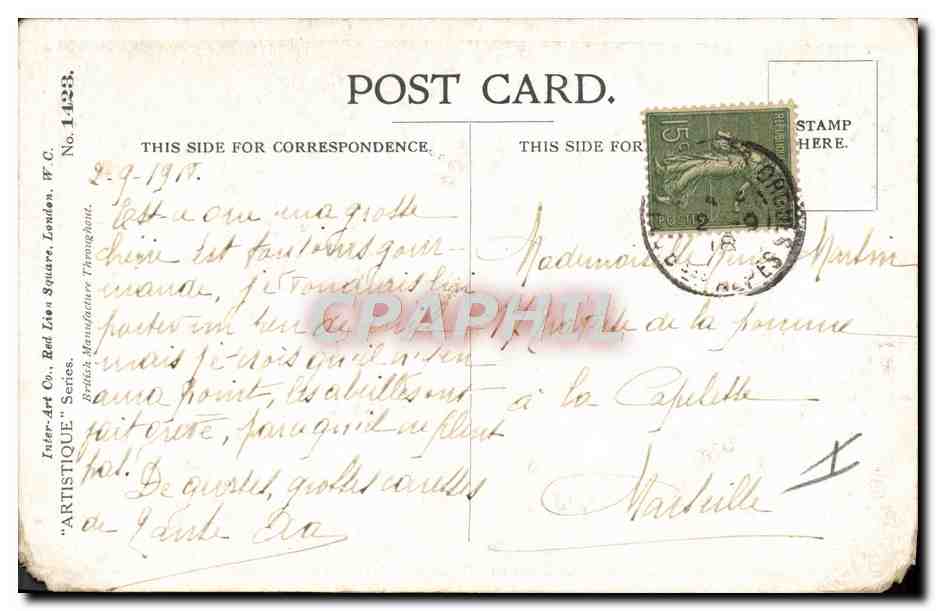 POST CARD.
THIS SIDE FOR CORRESPONDENCE.
THIS SIDE FOR
STAMP
HERE.
15c
POSTES
2 9
18
ALPES
2-9-1918.
Est-ce que ma grosse
chérie est toujours gour-
mande, je voudrais lui
porter un peu de
mais je crois qu'il n'y en
aura point, les abeilles ont
fait grève, parce qu'il ne pleut
pas.
De grosses, grosses caresses
de Tante
Mademoiselle Martin
de la pomme
à la Capelette
Marseille
X
CPAPHIL
Inter-Art Co., Red Lion Square, London, W.C.
"ARTISTIQUE" Series.
British Manufacture Throughout.
No. 1423.